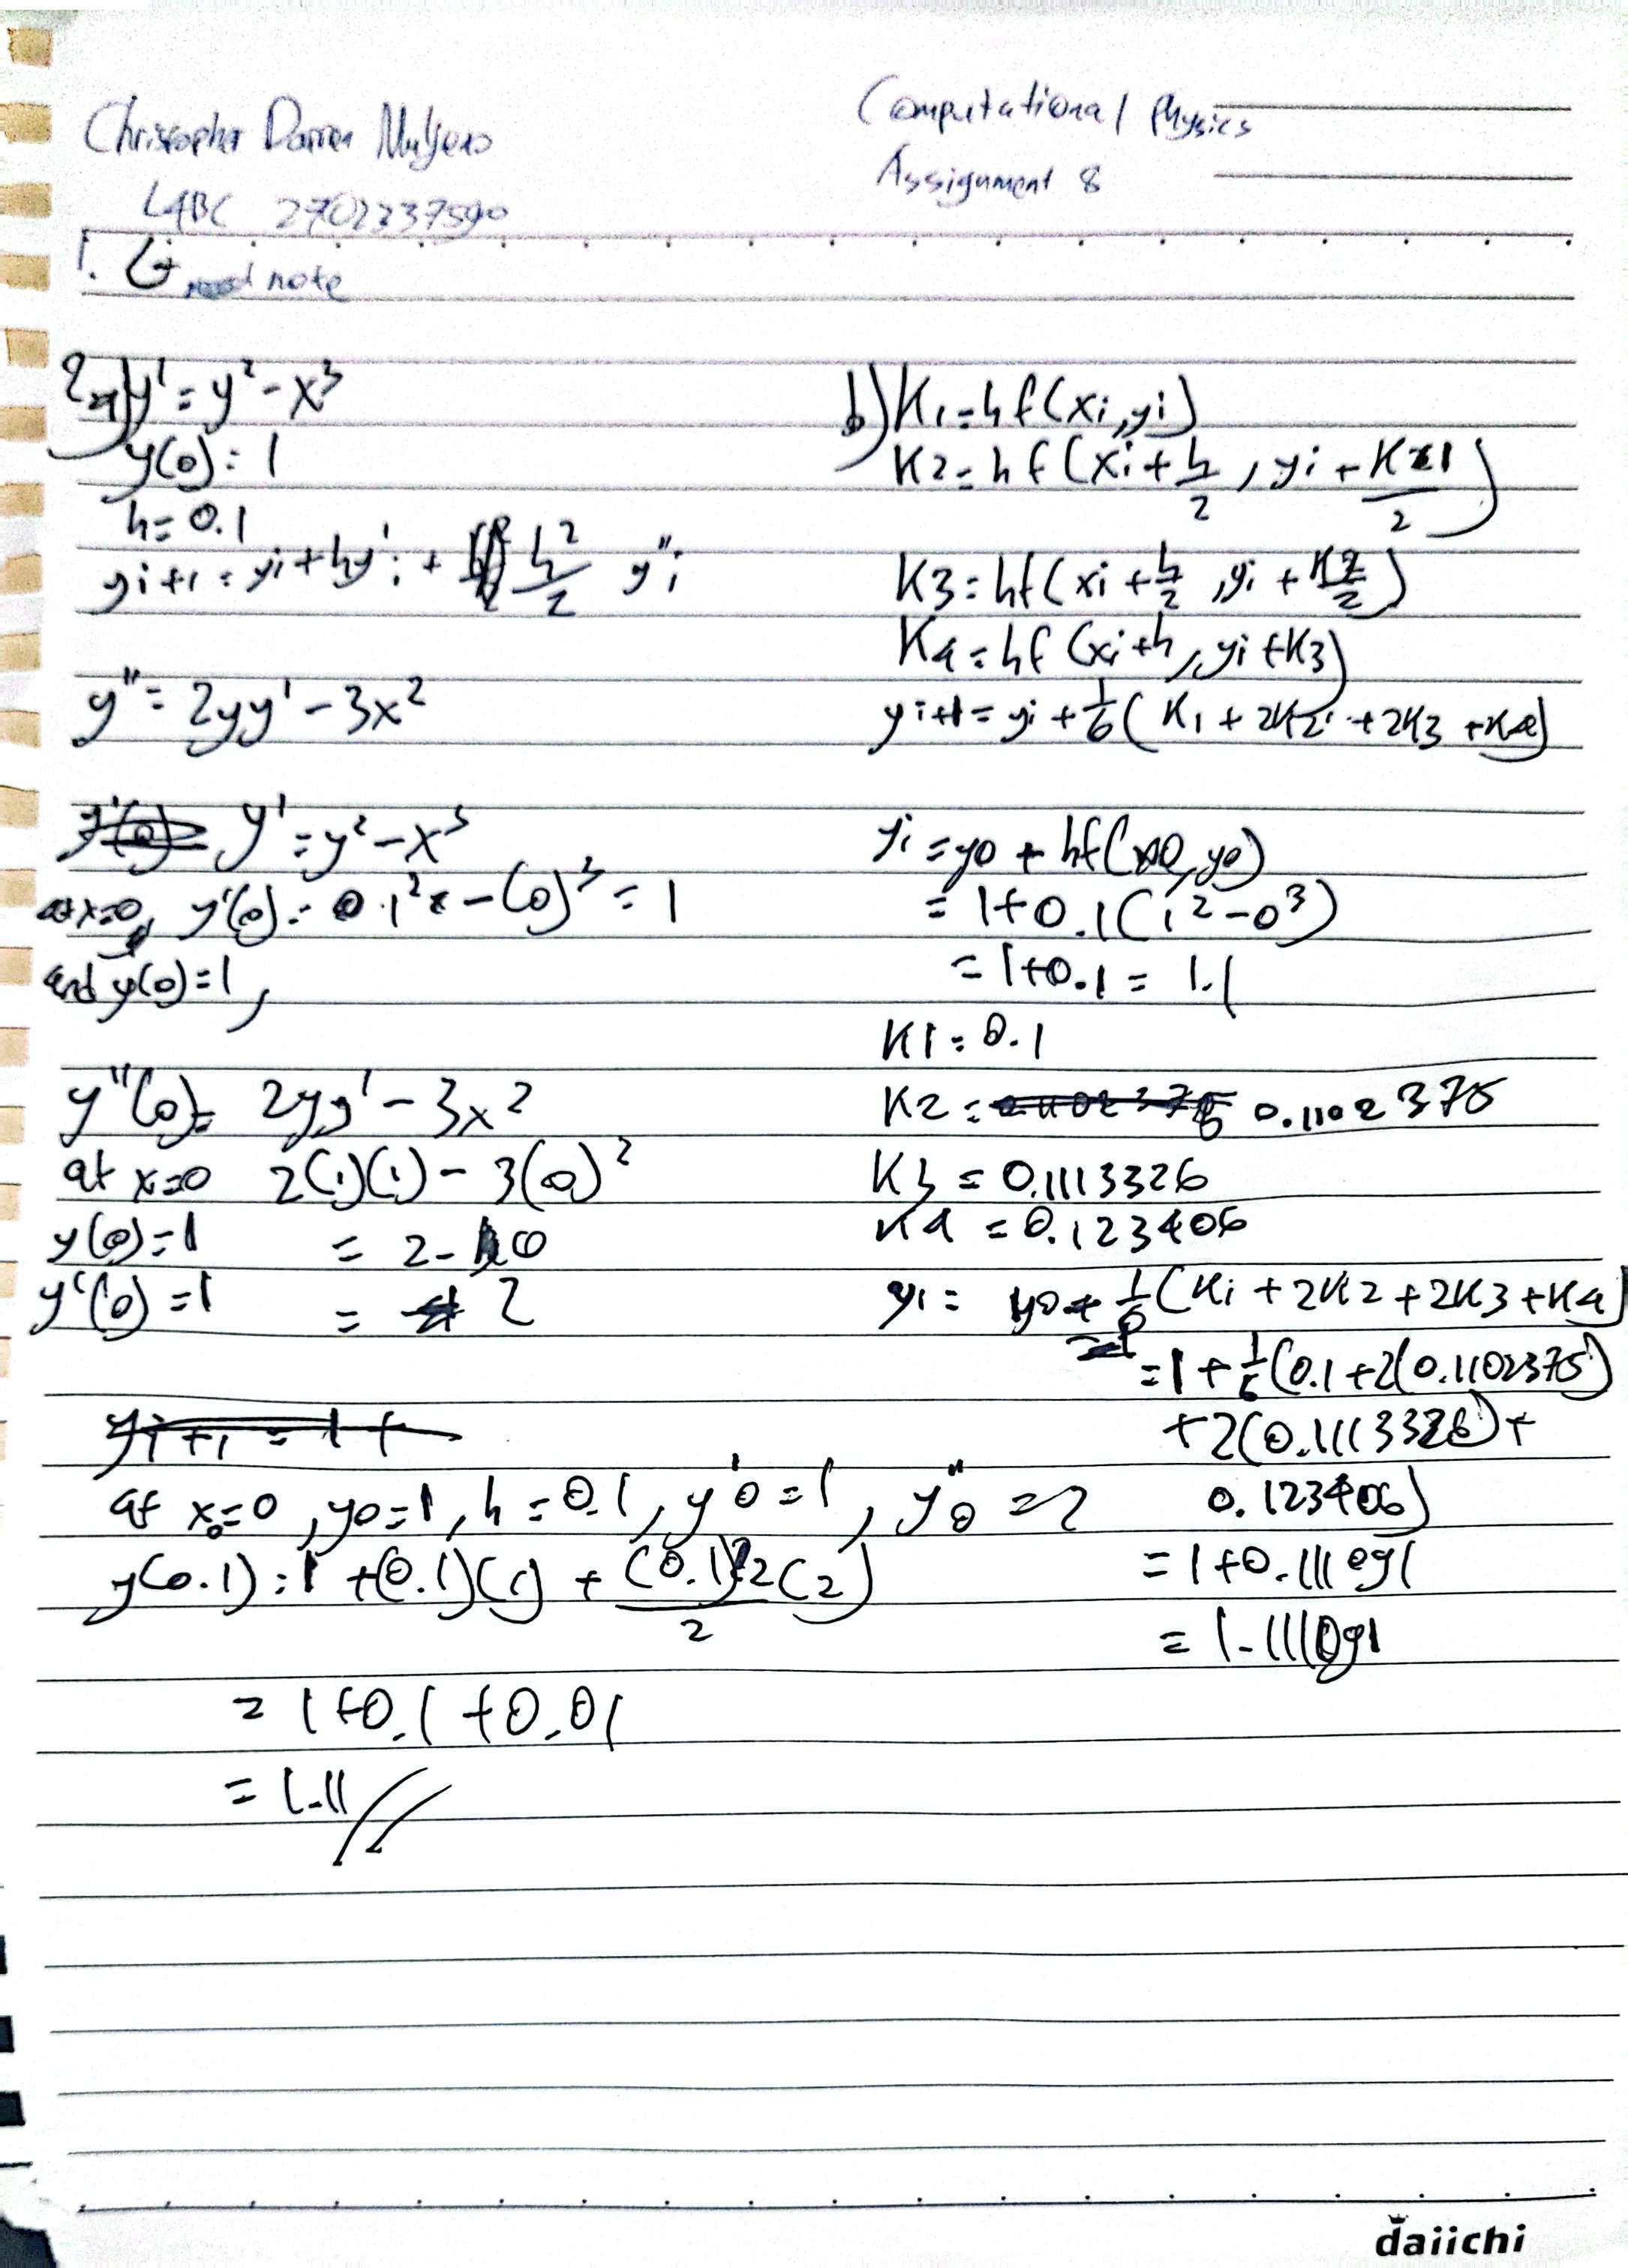 Christopher Darren
Computational Physics
L4BC 2702337590
Assignment 8
1. Good note
2a) y' = y² - x³
y(0) = 1
h = 0.1
yi+1 = yi + hy'i + h²/2 y''i
y'' = 2yy' - 3x²
y' = y² - x³
at x=0, y'(0) = 0.1² - (0)³ = 1
and y(0) = 1,
y''(0) = 2yy' - 3x²
at x=0 2(1)(1) - 3(0)²
y(0) = 1 = 2 - 0
y'(0) = 1 = 2
yi+1 = 1 +
at x0=0, y0=1, h=0.1, y'0=1, y''0=2
y(0.1) = 1 + (0.1)(1) + (0.1)^2(2)/2
= 1+0.1+0.01
= 1.11
b) K1 = hf(xi, yi)
K2 = hf(xi + h/2, yi + K1/2)
K3 = hf(xi + h/2, yi + K2/2)
K4 = hf(xi+h, yi+K3)
yi+1 = yi + 1/6 (K1 + 2K2 + 2K3 + K4)
yi = y0 + hf(x0, y0)
= 1+0.1(1² - 0³)
= 1+0.1 = 1.1
K1 = 0.1
K2 = 0.1102375
K3 = 0.1113326
K4 = 0.123406
y1 = y0 + 1/6 (Ki + 2K2 + 2K3 + K4)
= 1 + 1/6 (0.1 + 2(0.1102375)
+ 2(0.1113326) +
0.123406)
= 1+0.111091
= 1.111091
daiichi